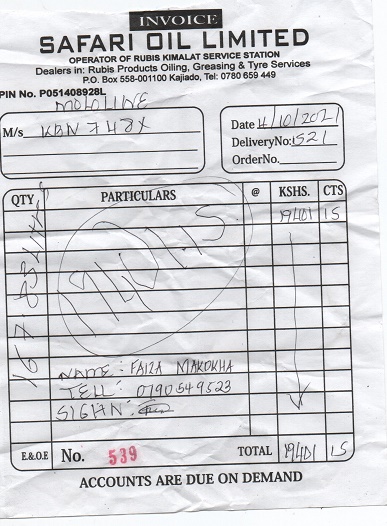 INVOICE
SAFARI OIL LIMITED
OPERATOR OF RUBIS KIMALAT SERVICE STATION
Dealers in: Rubis Products Oiling, Greasing & Tyre Services
P.O. Box 558-001100 Kajiado, Tel: 0780 659 449
PIN No. P051408928L
MOLOLINE
M/s KBN 748X
Date 4/10/2021
DeliveryNo: 1521
OrderNo.
QTY PARTICULARS @ KSHS. CTS
19401 15
NAME: FAIZA MAKOKHA
TELL: 0790549523
SIGHN:
E.&O.E No. 539 TOTAL 19401 15
ACCOUNTS ARE DUE ON DEMAND